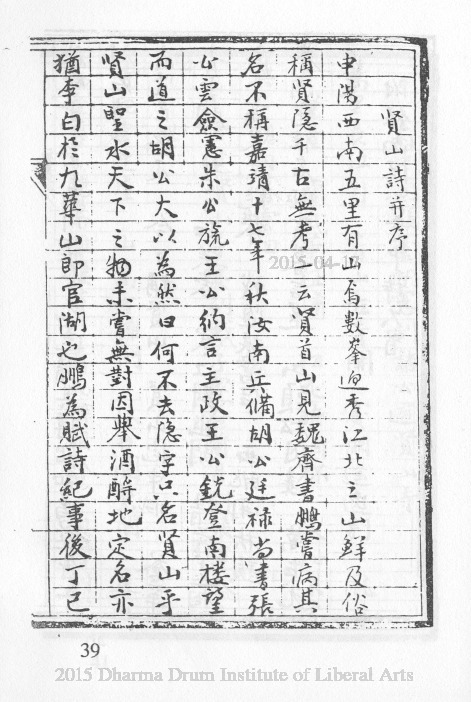 賢山詩并序
申陽西南五里有山焉數峯迎秀江北之山鮮及俗
稱賢隱千古無考一云賢首山見魏齊書鵬嘗病其
名不稱嘉靖十七年秋汝南兵備胡公廷祿尚書張
公雲僉憲朱公旒王公納言主政王公銳登南樓望
而道之胡公大以為然曰何不去隐字只名賢山乎
賢山聖水天下之物未嘗無對因舉酒酹地定名亦
猶李白於九華山郎官湖也鵬為賦詩紀事後丁巳
2015-04-13
39
2015 Dharma Drum Institute of Liberal Arts